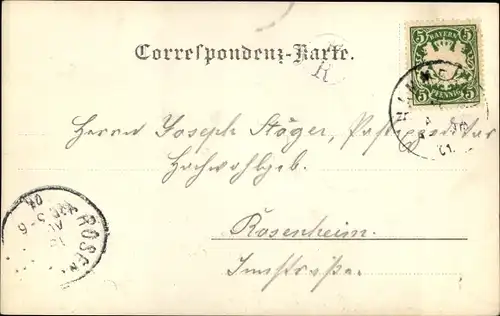 Correspondenz-Karte.
K
5 BAYERN 5
5 PFENNIG 5
Herrn Joseph Stöger,
Hochwohlgeb.
Rosenheim.
Innstraße.
ROSEN
5-6
01.